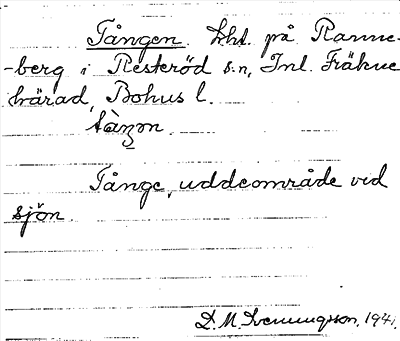 Tången khl. på Ranne-
-berg i Resteröd s:n, Inl. Fräkne
härad, Bohus l.
tàŋ̩n.
Tånge, uddeområde ved
sjön.
D. M. 1941.